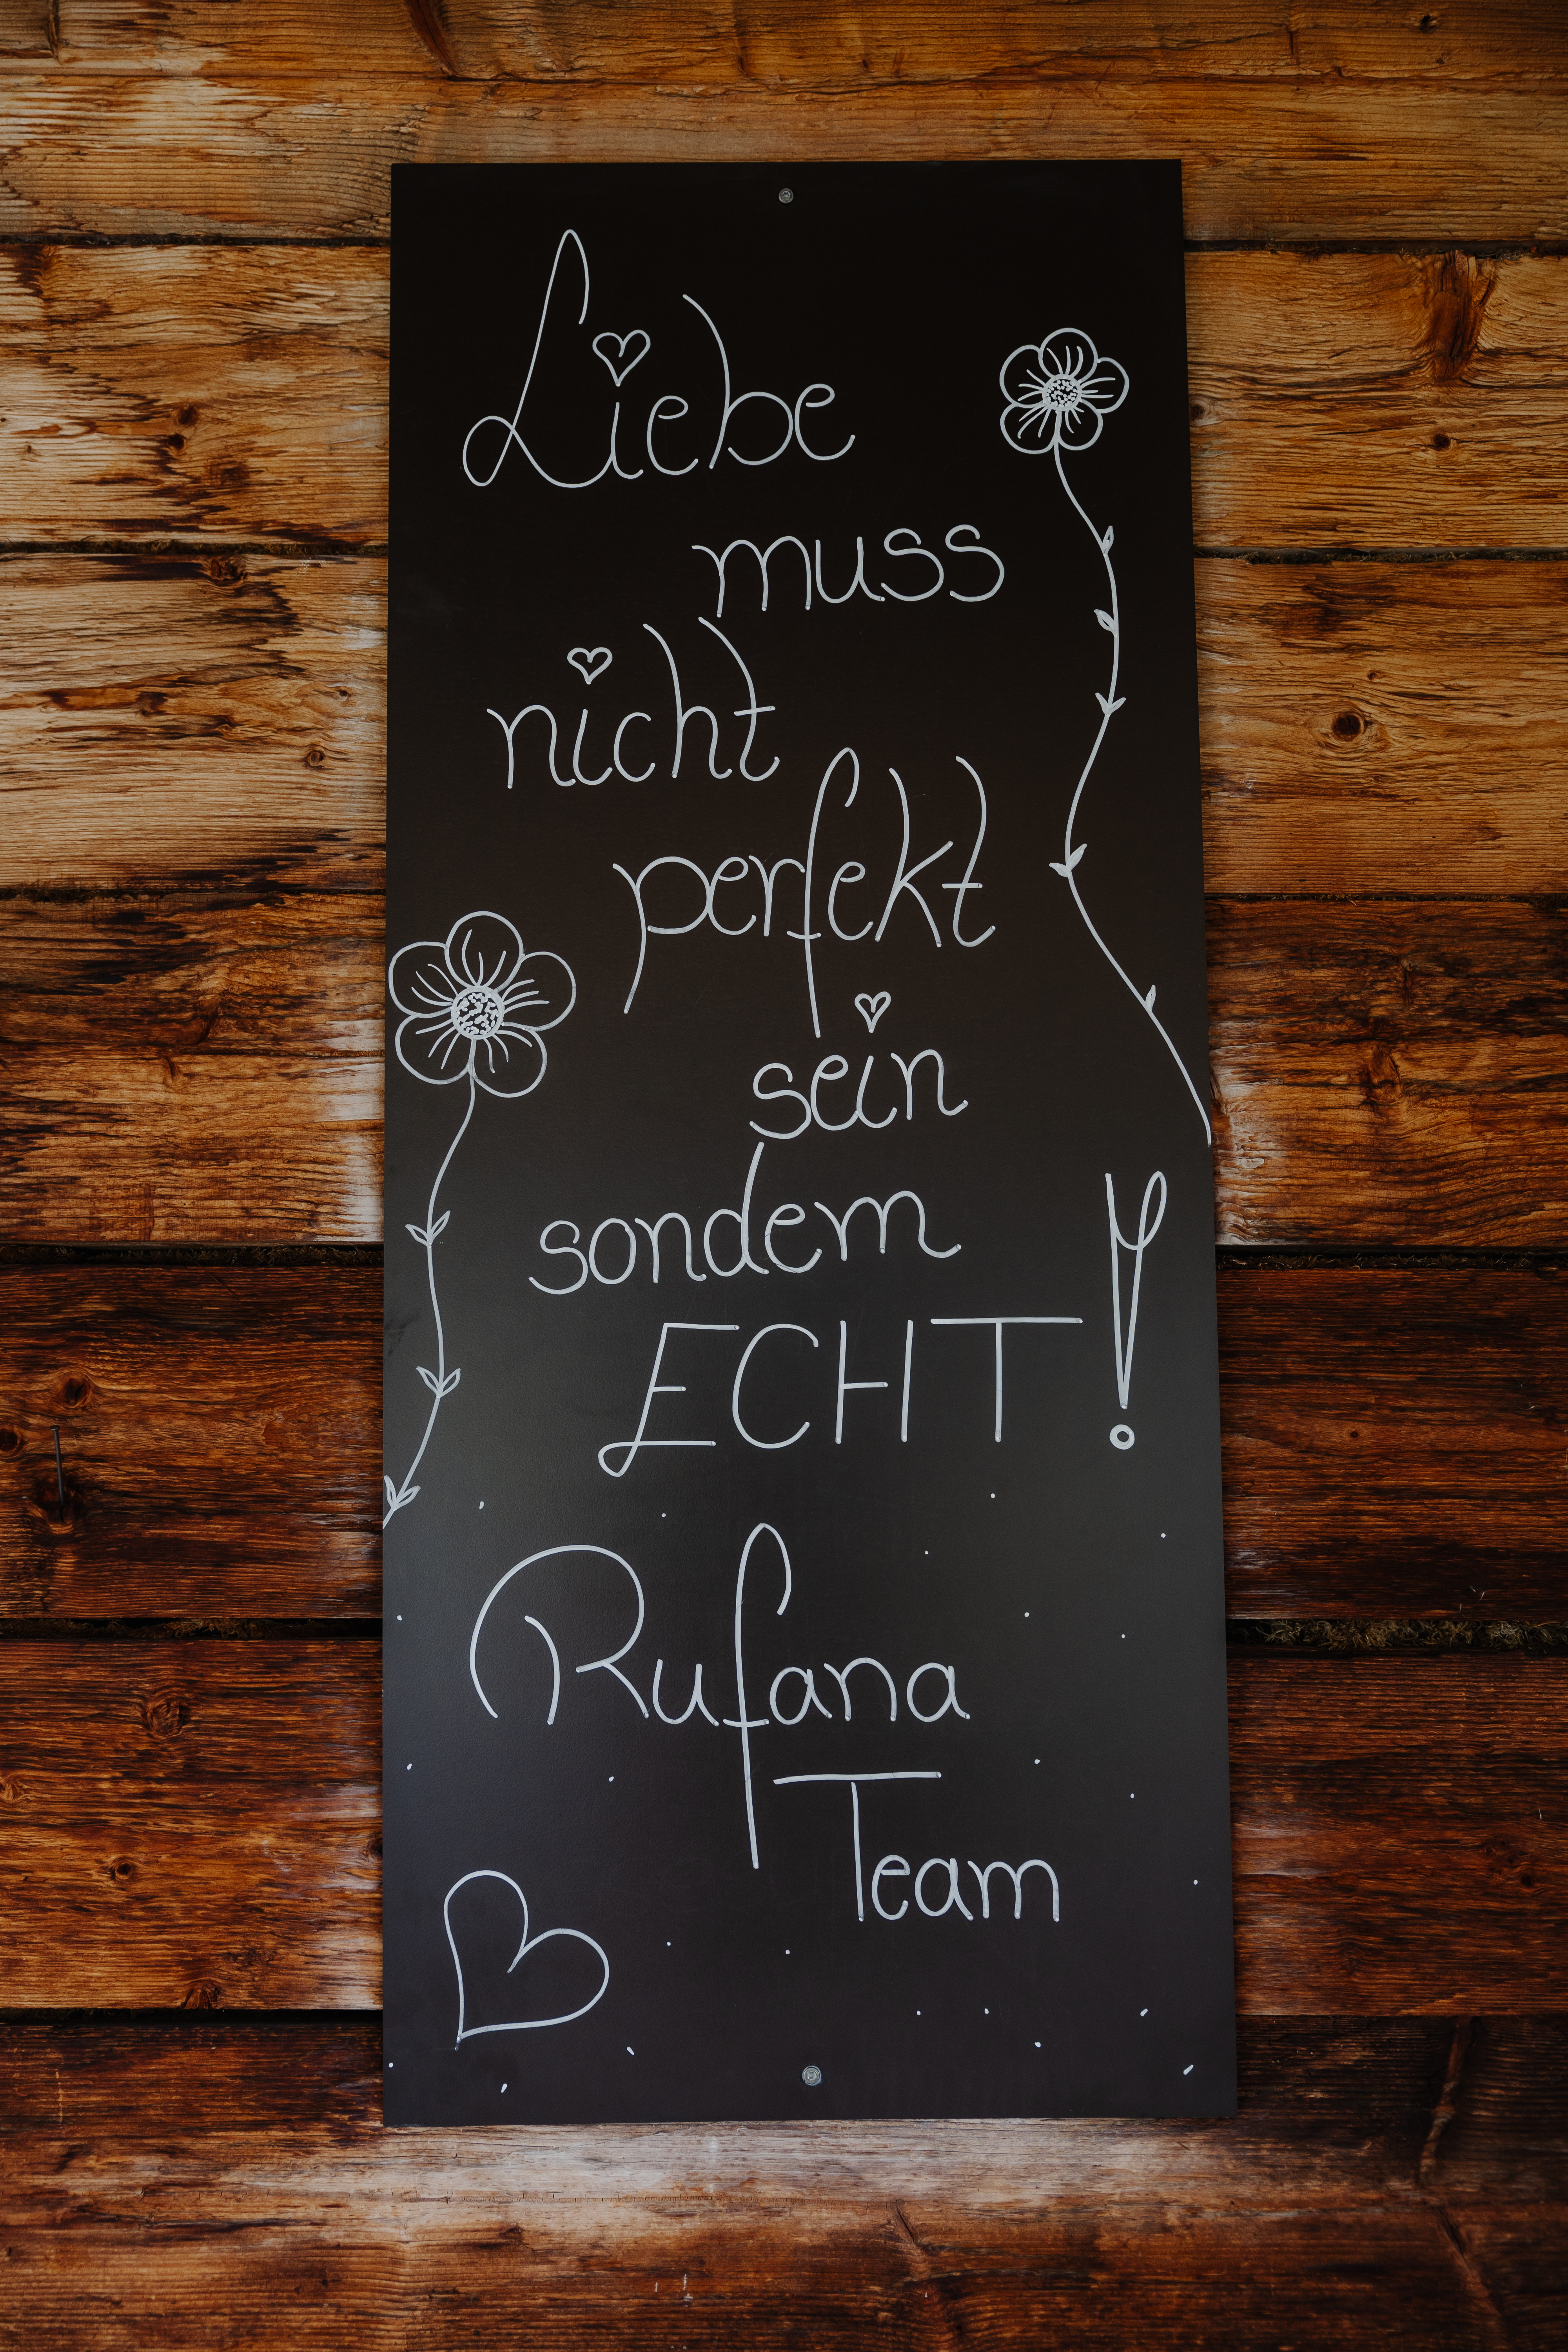 Liebe
muss
nicht
perfekt
sein
sondern
ECHT!
Rufana
Team